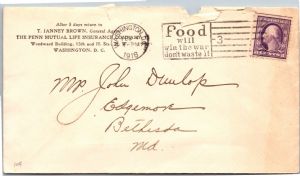 After 5 days return to
T. JANNEY BROWN, General Agent
THE PENN MUTUAL LIFE INSURANCE COMPANY
Woodward Building, 15th and H. Sts.
WASHINGTON, D. C.
WASHINGTON, D.C.
1918
Food
will
win the war
don't waste it
3
Mr. John Dunlop
Edgemoor
Bethesda
Md.